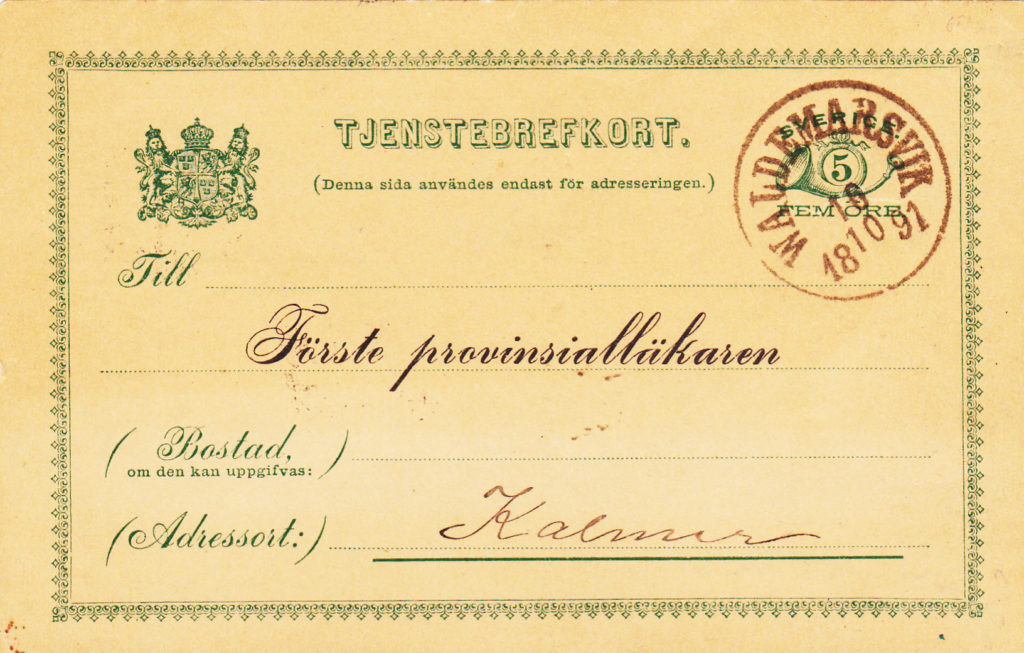 TJENSTEBREFKORT.
(Denna sida användes endast för adresseringen.)
SVERIGE.
5
FEM ÖRE.
WALDEMARSVIK
18 10 91
Till
Förste provinsialläkaren
(Bostad,
om den kan uppgifvas:)
(Adressort:) Kalmar